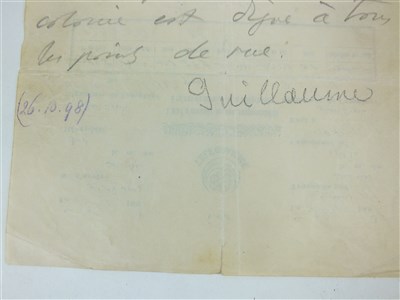 colonie est digne à tous
les points de vue.
Guillaume
(26.10.98)